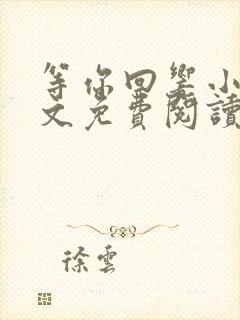 等你回響小
文免費閱讀
徐雲